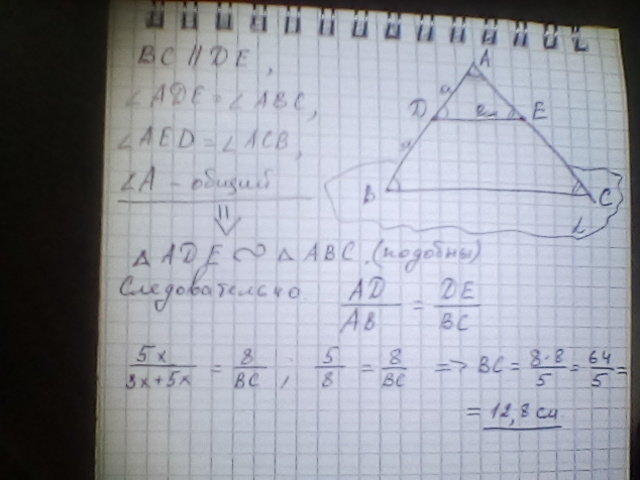 BC || DE,
∠ADE = ∠ABC,
∠AED = ∠ACB,
∠A - общий
⇓
△ADE ∾ △ABC. (подобны)
Следовательно AD/AB = DE/BC
5x/(3x+5x) = 8/BC ; 5/8 = 8/BC => BC = 8·8/5 = 64/5 =
= 12,8 см
A
D E
B C